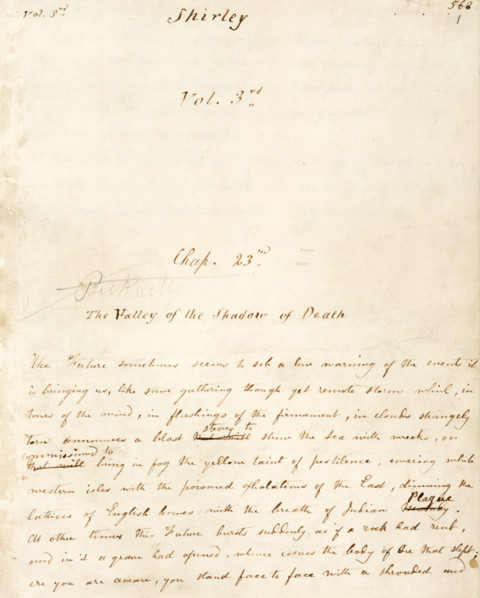 Vol. 3rd
Shirley
568
1
Vol. 3rd
Chap. 23rd
The Valley of the Shadow of Death
The Future sometimes seems to sob a low warning of the events it
is bringing us, like some gathering though yet remote storm which, in
tones of the wind, in flushings of the firmament, in clouds strangely
strong to
torn announces a blast that will strew the sea with wrecks, or
commissioned to
that will bring in fog the yellow taint of pestilence, covering white
western isles with the poisoned exhalations of the East, dimming the
Plague
lattices of English homes with the breath of Indian .
At other times this Future bursts suddenly, as if a rock had rent,
and in it a grave had opened, whence issues the body of one that slept:
ere you are aware, you stand face to face with a shrouded and